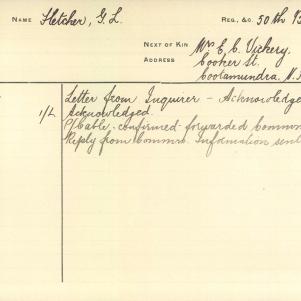 NAME Fletcher, G. L. REG. &c. 50th B
NEXT OF KIN Mrs E. C. Vickery.
ADDRESS Cooker St.
Cootamundra. N.
Letter from Inquirer - Acknowledge
1/L Acknowledged.
Cable - confirmed - forwarded Common
Reply from Commrs. Information sent